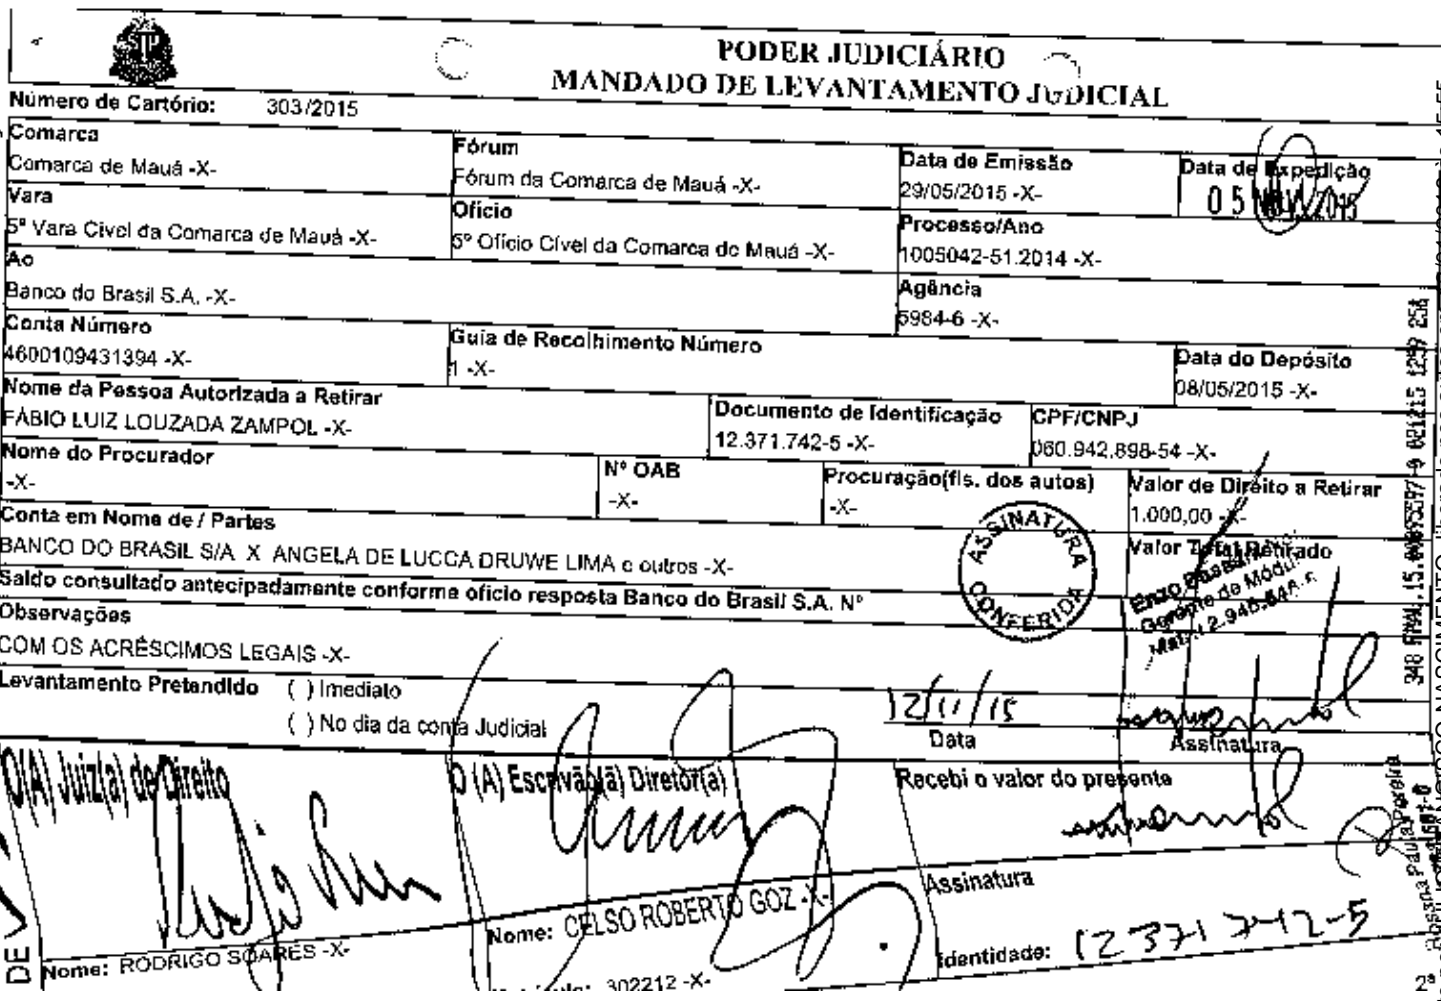 PODER JUDICIÁRIO
MANDADO DE LEVANTAMENTO JUDICIAL
Número de Cartório: 303/2015
Comarca
Comarca de Mauá -X-
Fórum
Fórum da Comarca de Mauá -X-
Data de Emissão
29/05/2015 -X-
Data de Expedição
05 NOV 2015
Vara
5ª Vara Civel da Comarca de Mauá -X-
Ofício
5º Ofício Cível da Comarca de Mauá -X-
Processo/Ano
1005042-51.2014 -X-
Ao
Banco do Brasil S.A. -X-
Agência
5984-6 -X-
Conta Número
4600109431394 -X-
Guia de Recolhimento Número
1 -X-
Data do Depósito
08/05/2015 -X-
Nome da Pessoa Autorizada a Retirar
FÁBIO LUIZ LOUZADA ZAMPOL -X-
Documento de Identificação
12.371.742-5 -X-
CPF/CNPJ
060.942.898-54 -X-
Nome do Procurador
-X-
Nº OAB
-X-
Procuração(fls. dos autos)
-X-
Valor de Direito a Retirar
1.000,00 -X-
Conta em Nome de / Partes
BANCO DO BRASIL S/A X ANGELA DE LUCCA DRUWE LIMA e outros -X-
ASSINATURA CONFERIDA
Valor Total Retirado
Enzo
Gerente de Módulo
Saldo consultado antecipadamente conforme ofício resposta Banco do Brasil S.A. Nº
Observações
COM OS ACRÉSCIMOS LEGAIS -X-
Levantamento Pretendido ( ) Imediato
( ) No dia da conta Judicial
12/11/15
Data
Assinatura
O(A) Juiz(a) de Direito
O (A) Escrivão(ã) Diretor(a)
Recebi o valor do presente
Assinatura
Nome: RODRIGO SOARES -X-
Nome: CELSO ROBERTO GOZ -X-
Identidade: 12371742-5
302212 -X-
DE
NASCIMENTO
2ª